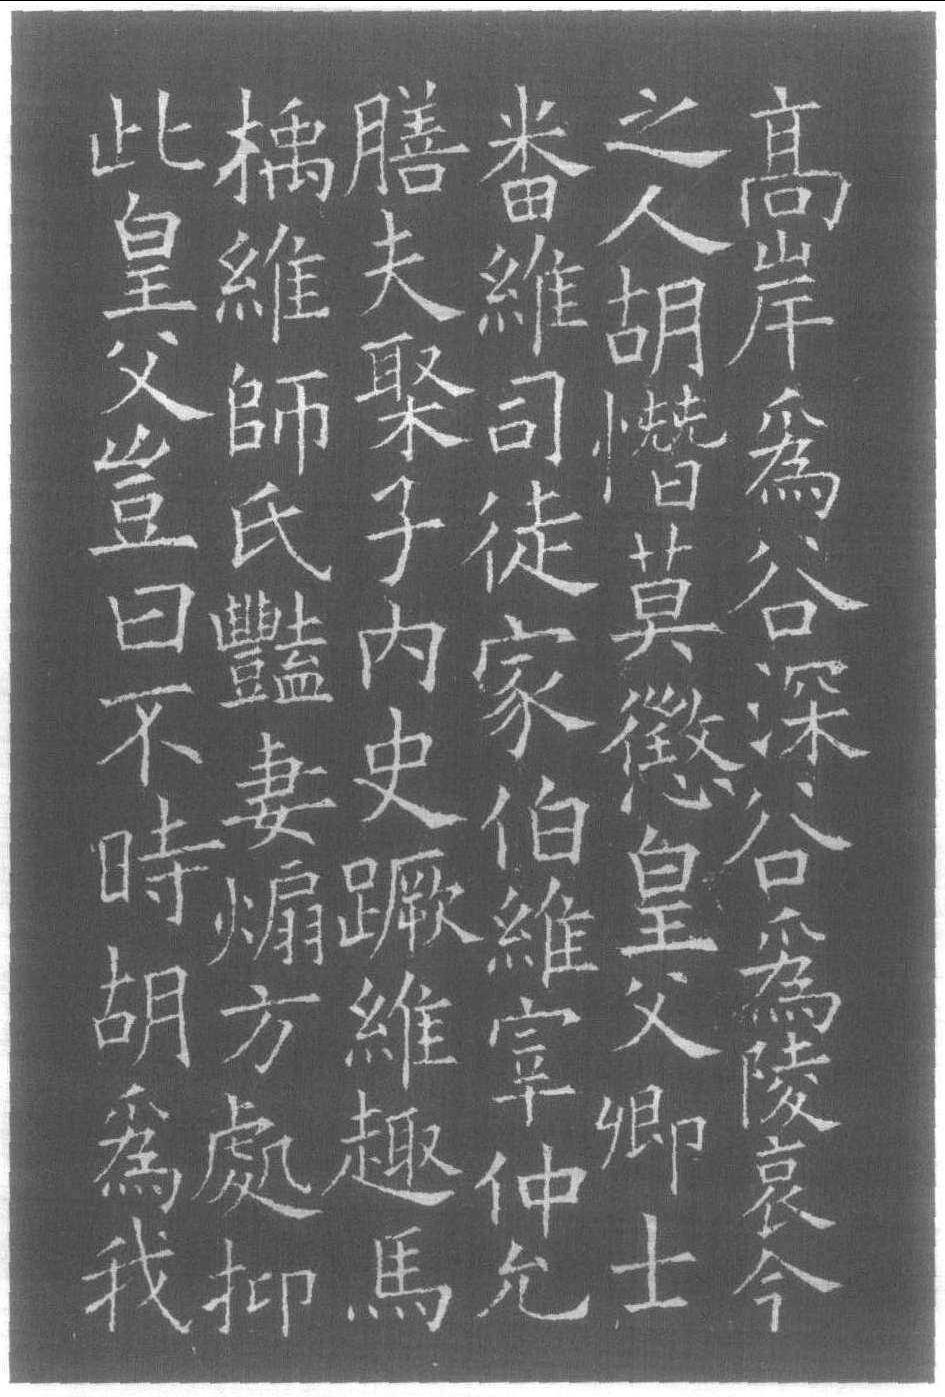 髙岸爲谷深谷爲陵哀今
之人胡憯莫懲皇父卿士
番維司徒家伯維宰仲允
膳夫聚子内史蹶維趣馬
楀維師氏豔妻煽方處抑
此皇父豈曰不時胡爲我